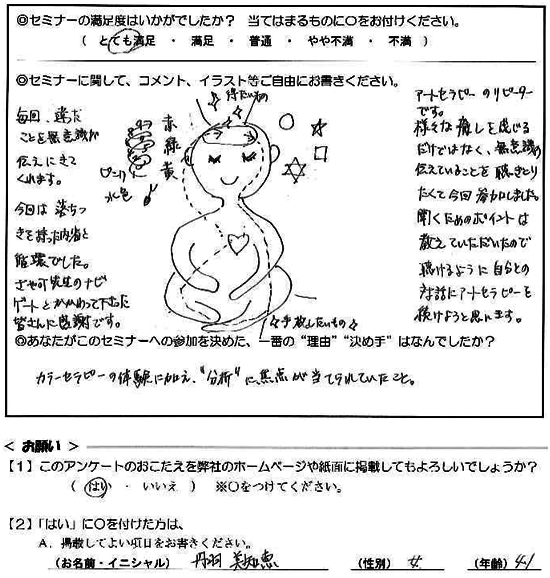 ◎セミナーの満足度はいかがでしたか？ 当てはまるものに〇をお付けください。
( とても満足 ・ 満足 ・ 普通 ・ やや不満 ・ 不満 )
◎セミナーに関して、コメント、イラスト等ご自由にお書きください。
毎回、違った
ことを無意識が
伝えにきて
くれます。
今回は 落ちつ
きを持った内省と
循環でした。
先生のナビ
ゲートとかかわって下さった
皆さんに感謝です。
☆得たいもの
赤
緑
黄
ピンク
水色
☆手放したいもの☆
アートセラピーのリピーター
です。
様々な癒しを感じる
だけではなく、無意識の
伝えていることを 聴きとり
たくて今回参加しました。
聞くためのポイントは
教えていただいたので
聴けるように自分との
対話にアートセラピーを
続けようと思います。
◎あなたがこのセミナーへの参加を決めた、一番の“理由”“決め手”はなんでしたか？
カラーセラピーの体験に加え、“分析”に焦点が当てられていたこと。
＜ お願い ＞
【１】このアンケートのおこたえを弊社のホームページや紙面に掲載してもよろしいでしょうか？
( はい ・ いいえ ) ※〇をつけてください。
【２】「はい」に〇を付けた方は、
Ａ．掲載してよい項目をお書きください。
(お名前・イニシャル) 丹羽 美知恵 (性別) 女 (年齢) 41